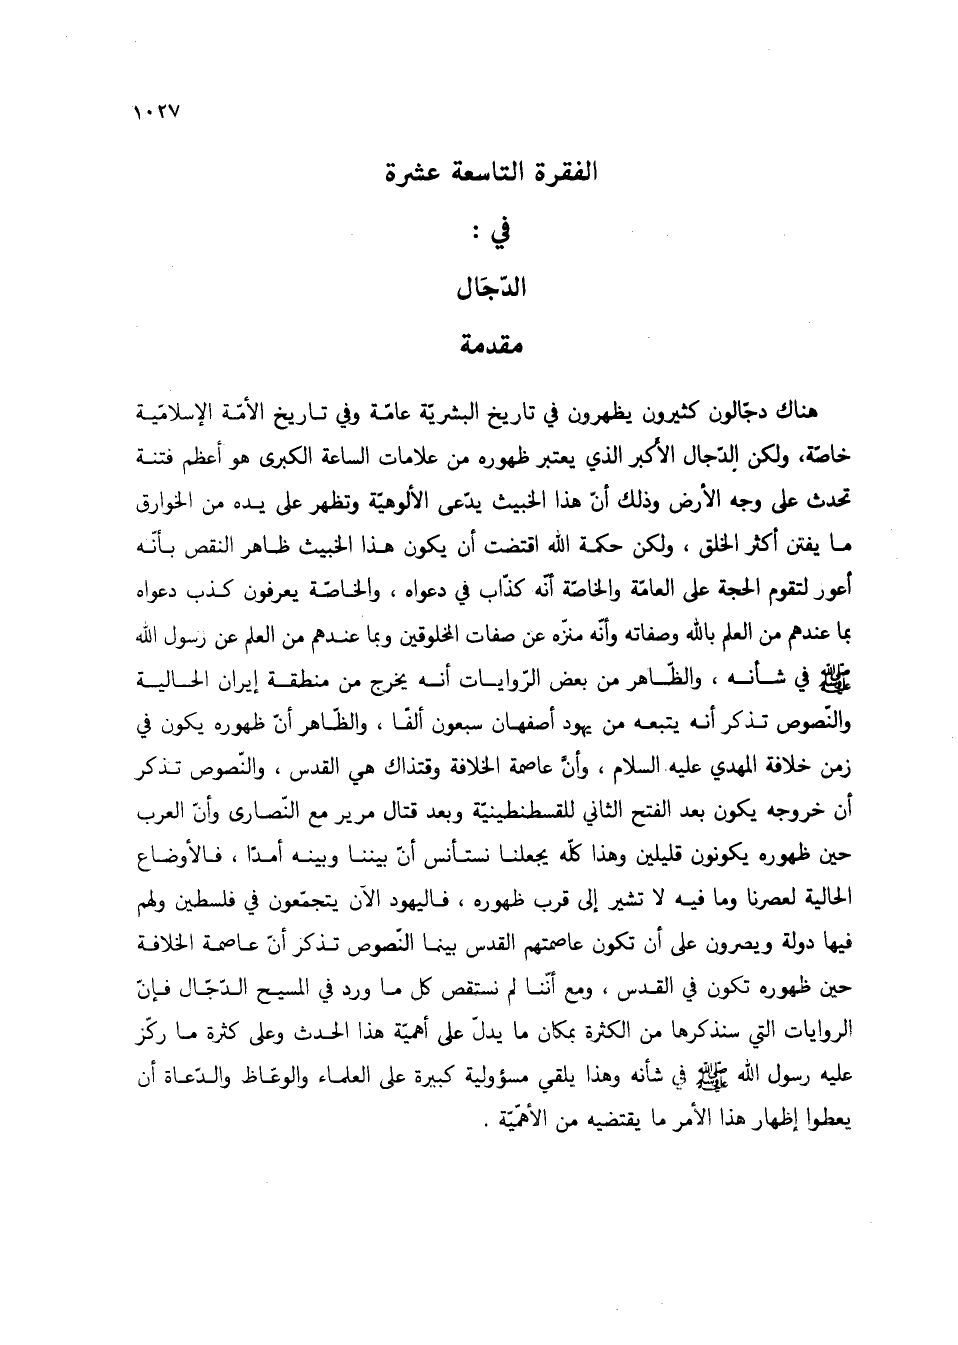 ١٠٢٧
الفقرة التاسعة عشرة
في :
الدّجَال
مقدمة
هناك دجّالون كثيرون يظهرون في تاريخ البشريّة عامّة وفي تاريخ الأمّة الإسلاميّة
خاصّة، ولكن الدّجال الأكبر الذي يعتبر ظهوره من علامات الساعة الكبرى هو أعظم فتنة
تحدث على وجه الأرض وذلك أنّ هذا الخبيث يدّعى الألوهيّة وتظهر على يده من الخوارق
ما يفتن أكثر الخلق ، ولكن حكمة الله اقتضت أن يكون هذا الخبيث ظاهر النقص بأنّه
أعور لتقوم الحجة على العامّة والخاصّة أنّه كذّاب في دعواه ، والخاصّة يعرفون كذب دعواه
بما عندهم من العلم بالله وصفاته وأنّه منزّه عن صفات المخلوقين وبما عندهم من العلم عن رسول الله
ﷺ في شأنه ، والظّاهر من بعض الرّوايات أنه يخرج من منطقة إيران الحالية
والنّصوص تذكر أنه يتبعه من يهود أصفهان سبعون ألفًا ، والظّاهر أنّ ظهوره يكون في
زمن خلافة المهدي عليه السلام ، وأنَّ عاصمة الخلافة وقتذاك هي القدس ، والنّصوص تذكر
أن خروجه يكون بعد الفتح الثاني للقسطنطينيّة وبعد قتال مرير مع النّصارى وأنّ العرب
حين ظهوره يكونون قليلين وهذا كلّه يجعلنا نستأنس أنّ بيننا وبينه أمدًا ، فالأوضاع
الحالية لعصرنا وما فيه لا تشير إلى قرب ظهوره ، فاليهود الآن يتجمّعون في فلسطين ولهم
فيها دولة ويصرون على أن تكون عاصمتهم القدس بينما النّصوص تذكر أنّ عاصمة الخلافة
حين ظهوره تكون في القدس ، ومع أنّنا لم نستقص كل ما ورد في المسيح الدّجّال فإنّ
الروايات التي سنذكرها من الكثرة بمكان ما يدلّ على أهميّة هذا الحدث وعلى كثرة ما ركّز
عليه رسول الله ﷺ في شأنه وهذا يلقي مسؤولية كبيرة على العلماء والوعّاظ والدّعاة أن
يعطوا إظهار هذا الأمر ما يقتضيه من الأهمّيّة .